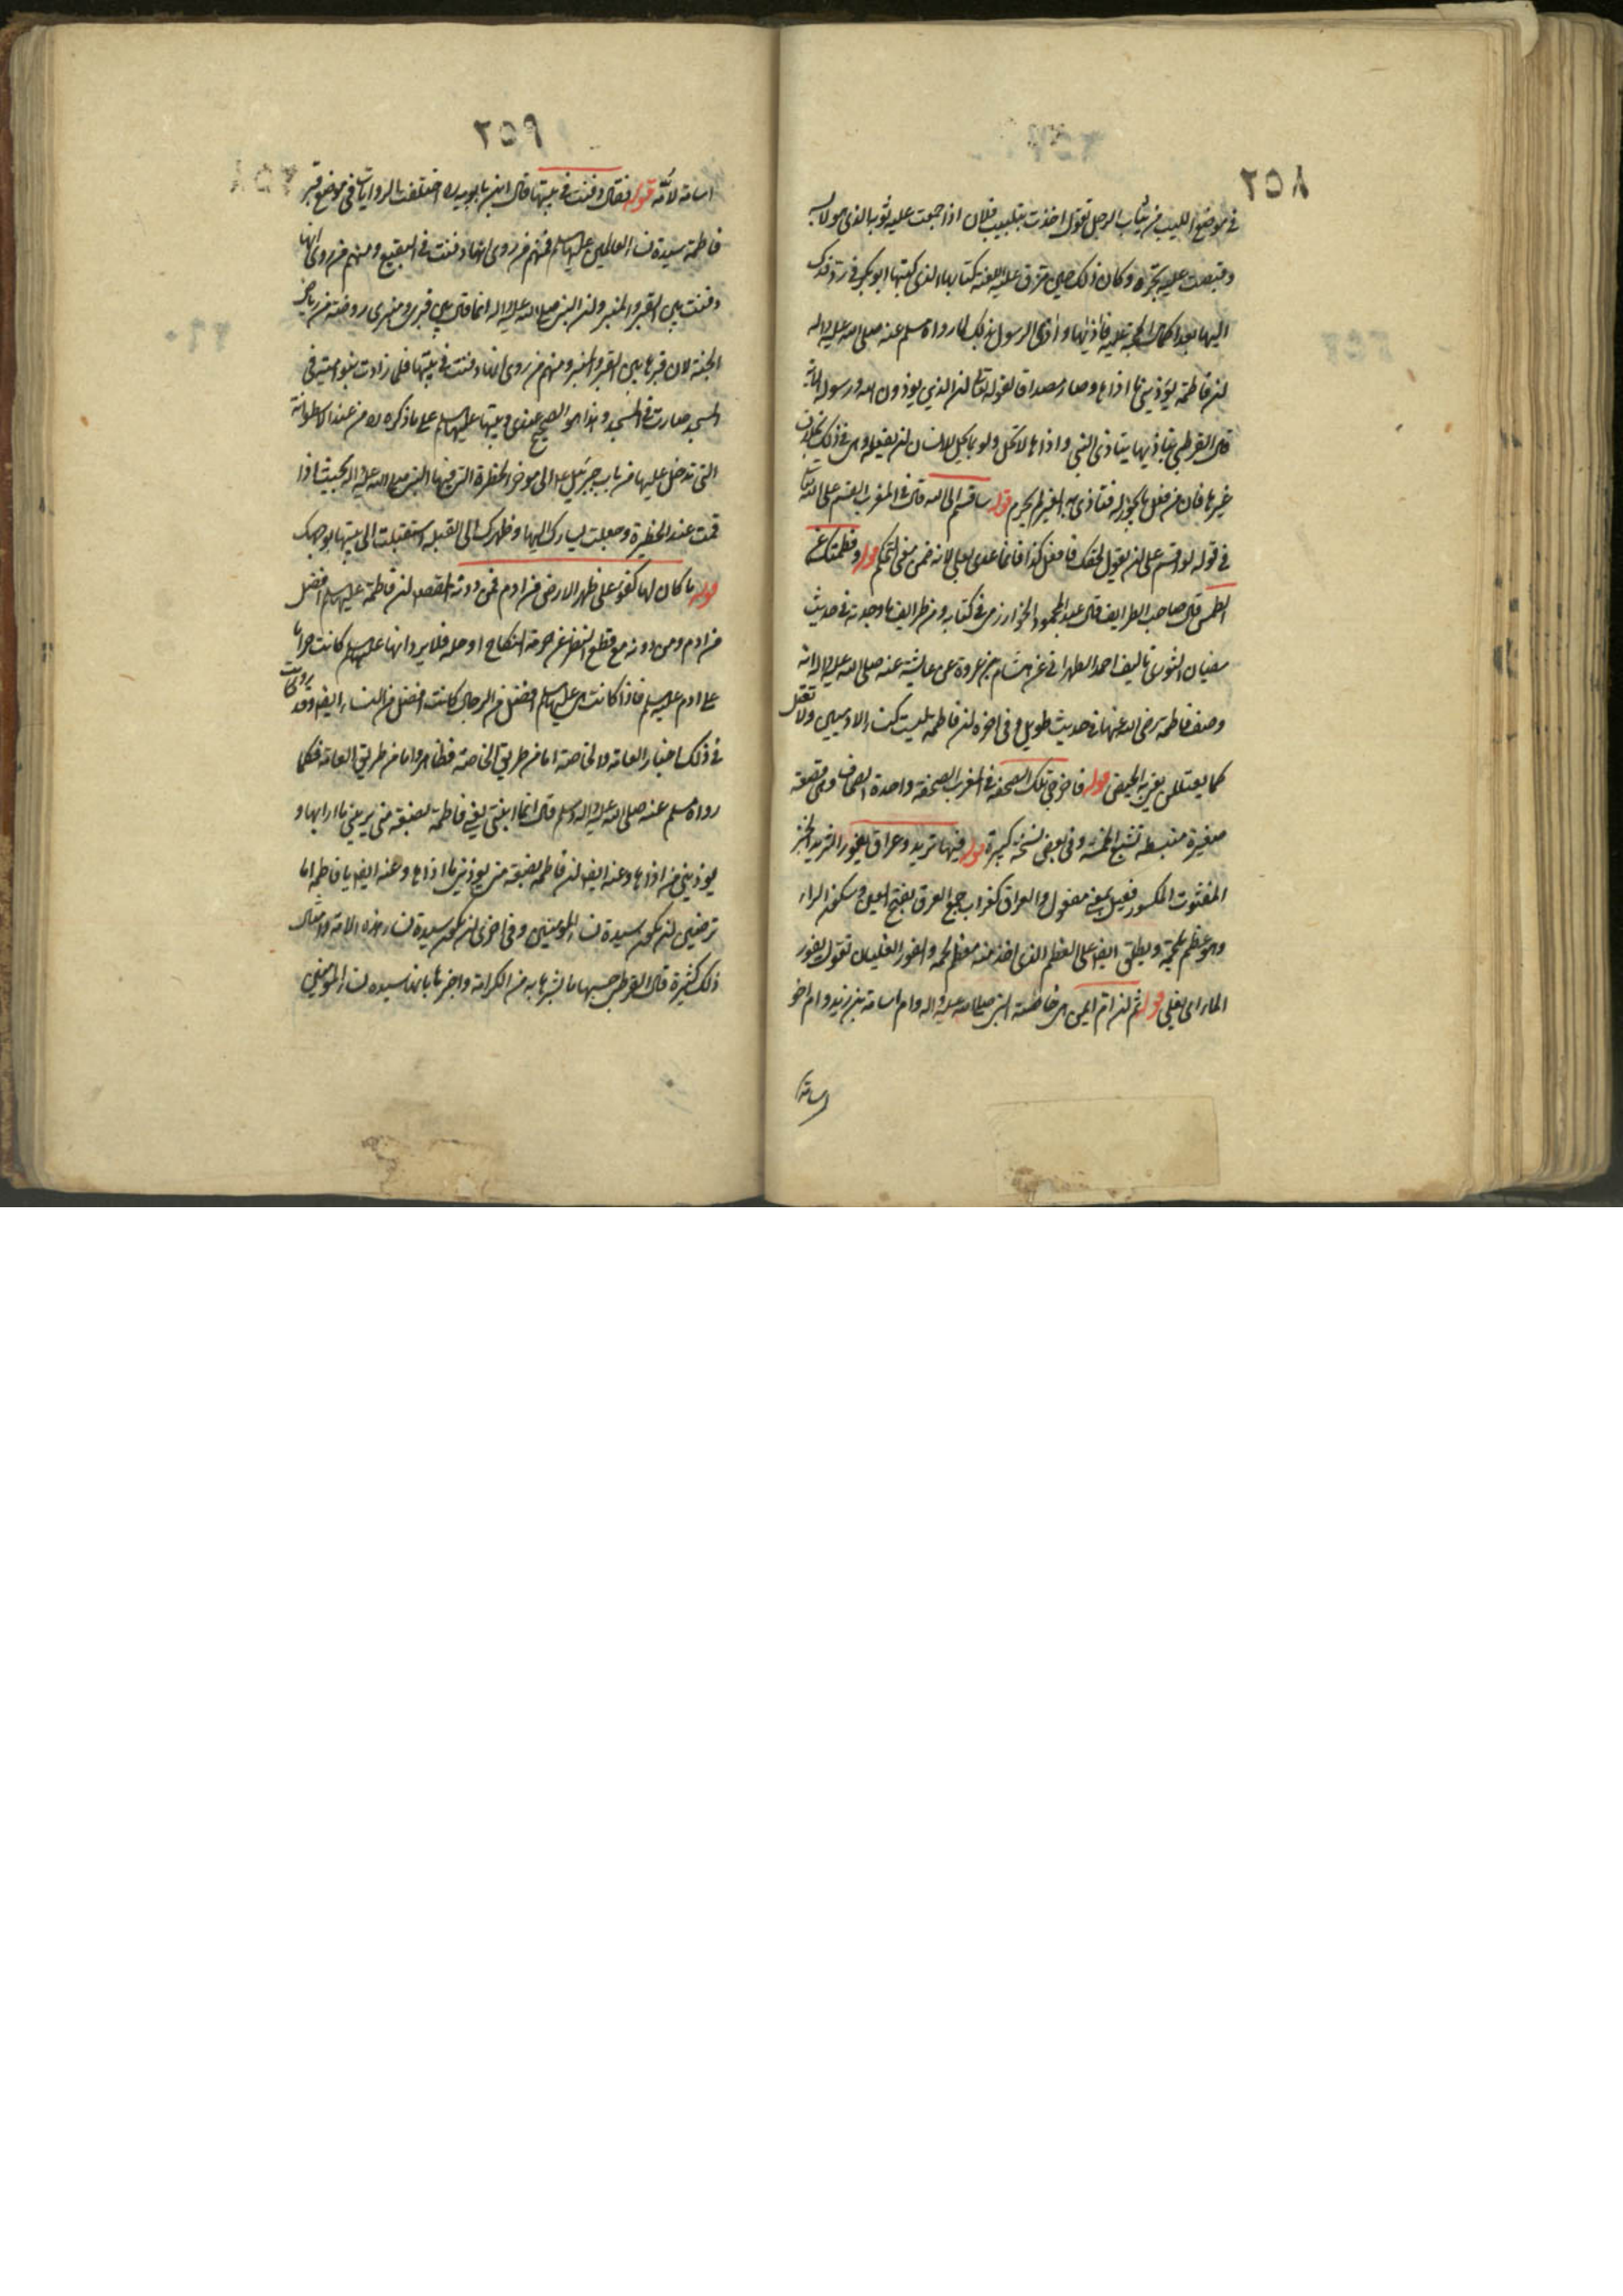 ٢٥٨
في موضع اللبب من ثياب الرجل تقول اخذت بتلبيب فلان اذا جمعت عليه ثوبه الذي هو لابسه
وقبضت عليه تجره وكان ذلك حين مزق عليه اللعنة كتابها الذي كتبها ابو بكر في رد فدك
اليها بعد اكمال الحجة عليه فاذيها واذى الرسول بذلك لما رواه مسلم عنه صلى الله عليه واله
ان فاطمة يؤذيني ما اذاها وصار مصداقا لقوله تعالى ان الذين يوذون الله ورسوله الاية
قال القرطبي بتاذيها يتاذى النبي واذاها لا تحل ولو بما يحل للانسان ان يفعله وهي في ذلك بخلاف
غيرها فان من فعل ما يجوز له فتاذى به الغير لم يحرم قوله ساقسم على الله قال في المغرب القسم على الله
في قوله لو اقسم على ان يقول بحقك فافعل كذا فانما عدى بعلى لانه ضمن معنى التحكم قوله وفطمتك عن
الطمث قال صاحب الطرايف قال عبد المحمود الخوارزمي في كتابه ومن طرايف ما وجدته في حديث
سفيان الثوري تاليف احمد الطبراني عن هشام بن عروة عن عايشة عنه صلى الله عليه واله انه
وصف فاطمة رضي الله عنها في حديث طويل وفي اخره ان فاطمة ليست كنساء الادميين ولا تعتل
كما يعتللن يعني به الحيض قوله فاخرجي تلك الصحفة في المغرب الصحفة واحدة الصحاف وهي قصعة
صغيرة منبسطة تشبع الخمسة وفي بعض نسخة كبيرة قوله فيها ثريد وعراق يفور الثريد الخبز
المفتوت المكسور فعيل بمعنى مفعول والعراق كغراب جمع العرق بفتح العين وسكون الراء
وهو عظم بلحمه ويطلق ايضا على العظم الذي اخذ عنه معظم لحمه والفور الغليان تقول يفور
الماء اي يغلي قوله ثم ان ام ايمن هي حاضنة النبي صلى الله عليه واله وام اسامة بن زيد وام اخو
اسامة
٢٥٩
اسامة لامه قوله فقال دفنت في بيتها قال ابن بابويه ره اختلفت الروايات في موضع قبر
فاطمة سيدة نساء العالمين عليها السلام فمنهم من روى انها دفنت في البقيع ومنهم من روى انها
دفنت بين القبر والمنبر وان النبي صلى الله عليه واله انما قال بين قبري ومنبري روضة من رياض
الجنة لان قبرها بين القبر والمنبر ومنهم من روى انها دفنت في بيتها فلما زادت بنو امية في
المسجد صارت في المسجد وهذا هو الصحيح عندي وبيتها عليها السلام على ما ذكره ره من عند الاسطوانة
التي تدخل عليها من باب جبرئيل ع الى موخر الحظيرة التي فيها النبي صلى الله عليه واله بحيث اذا
قمت عند الحظيرة وجعلت يسارك اليها وظهرك الى القبلة استقبلت الى بيتها بوجهك
قوله ما كان لها كفو على ظهر الارض من ادم فمن دونه المقصد ان فاطمة عليها السلام افضل
من ادم ومن دونه مع قطع النظر عن حرمة النكاح او حله فلا يرد انها عليها السلام كانت حراما
على ادم عليه السلام فاذا كانت هي عليها السلام افضل من الرجال كانت افضل من النساء ايضا وقد وردت
في ذلك اخبار العامة والخاصة اما من طريق الخاصة فظاهر واما من طريق العامة فكما
رواه مسلم عنه صلى الله عليه واله وسلم قال انما ابنتي يعني فاطمة بضعة مني يريبني ما ارابها و
يوذيني من اذاها وعنه ايضا ان فاطمة بضعة مني يوذيني ما اذاها وعنه ايضا يا فاطمة اما
ترضين ان تكون سيدة نساء المؤمنين وفي اخرى ان تكون سيدة نساء هذه الامة وامثال
ذلك كثيرة قال القرطبي حسبها ما بشرها به من الكرامة واخبرها بانها سيدة نساء المؤمنين